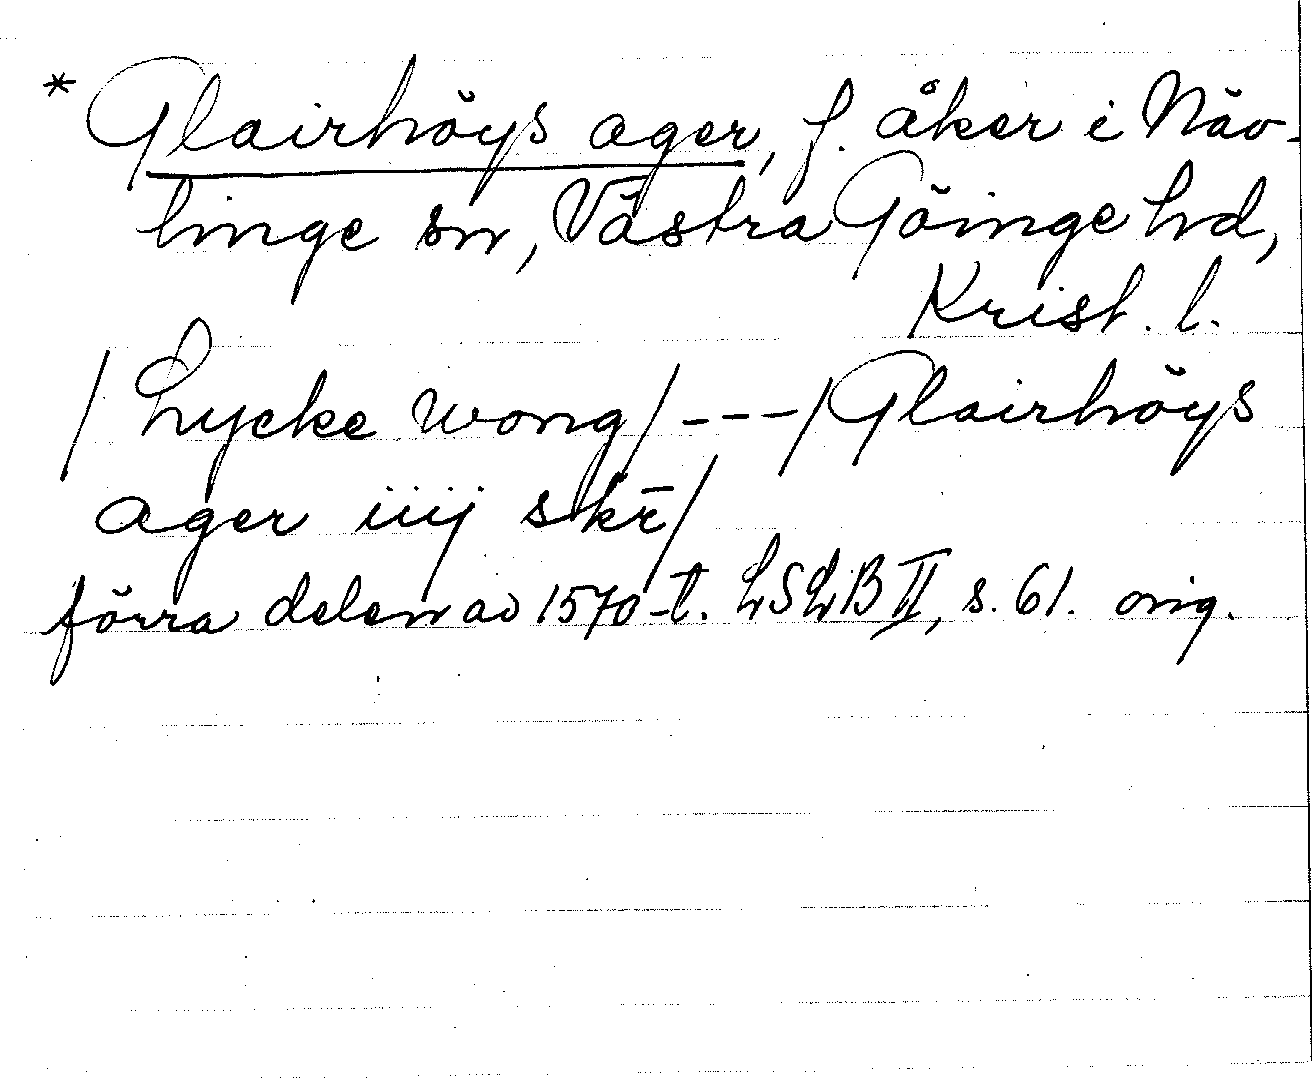 * Glairhöys ager, f. åker i Näv-
linge sn, Västra Göinge hd,
Krist. l.
/Lycke wong/---/Glairhöys
ager iiij skr̄/
förra delen av 1570-t. LSLB II, s. 61. orig.